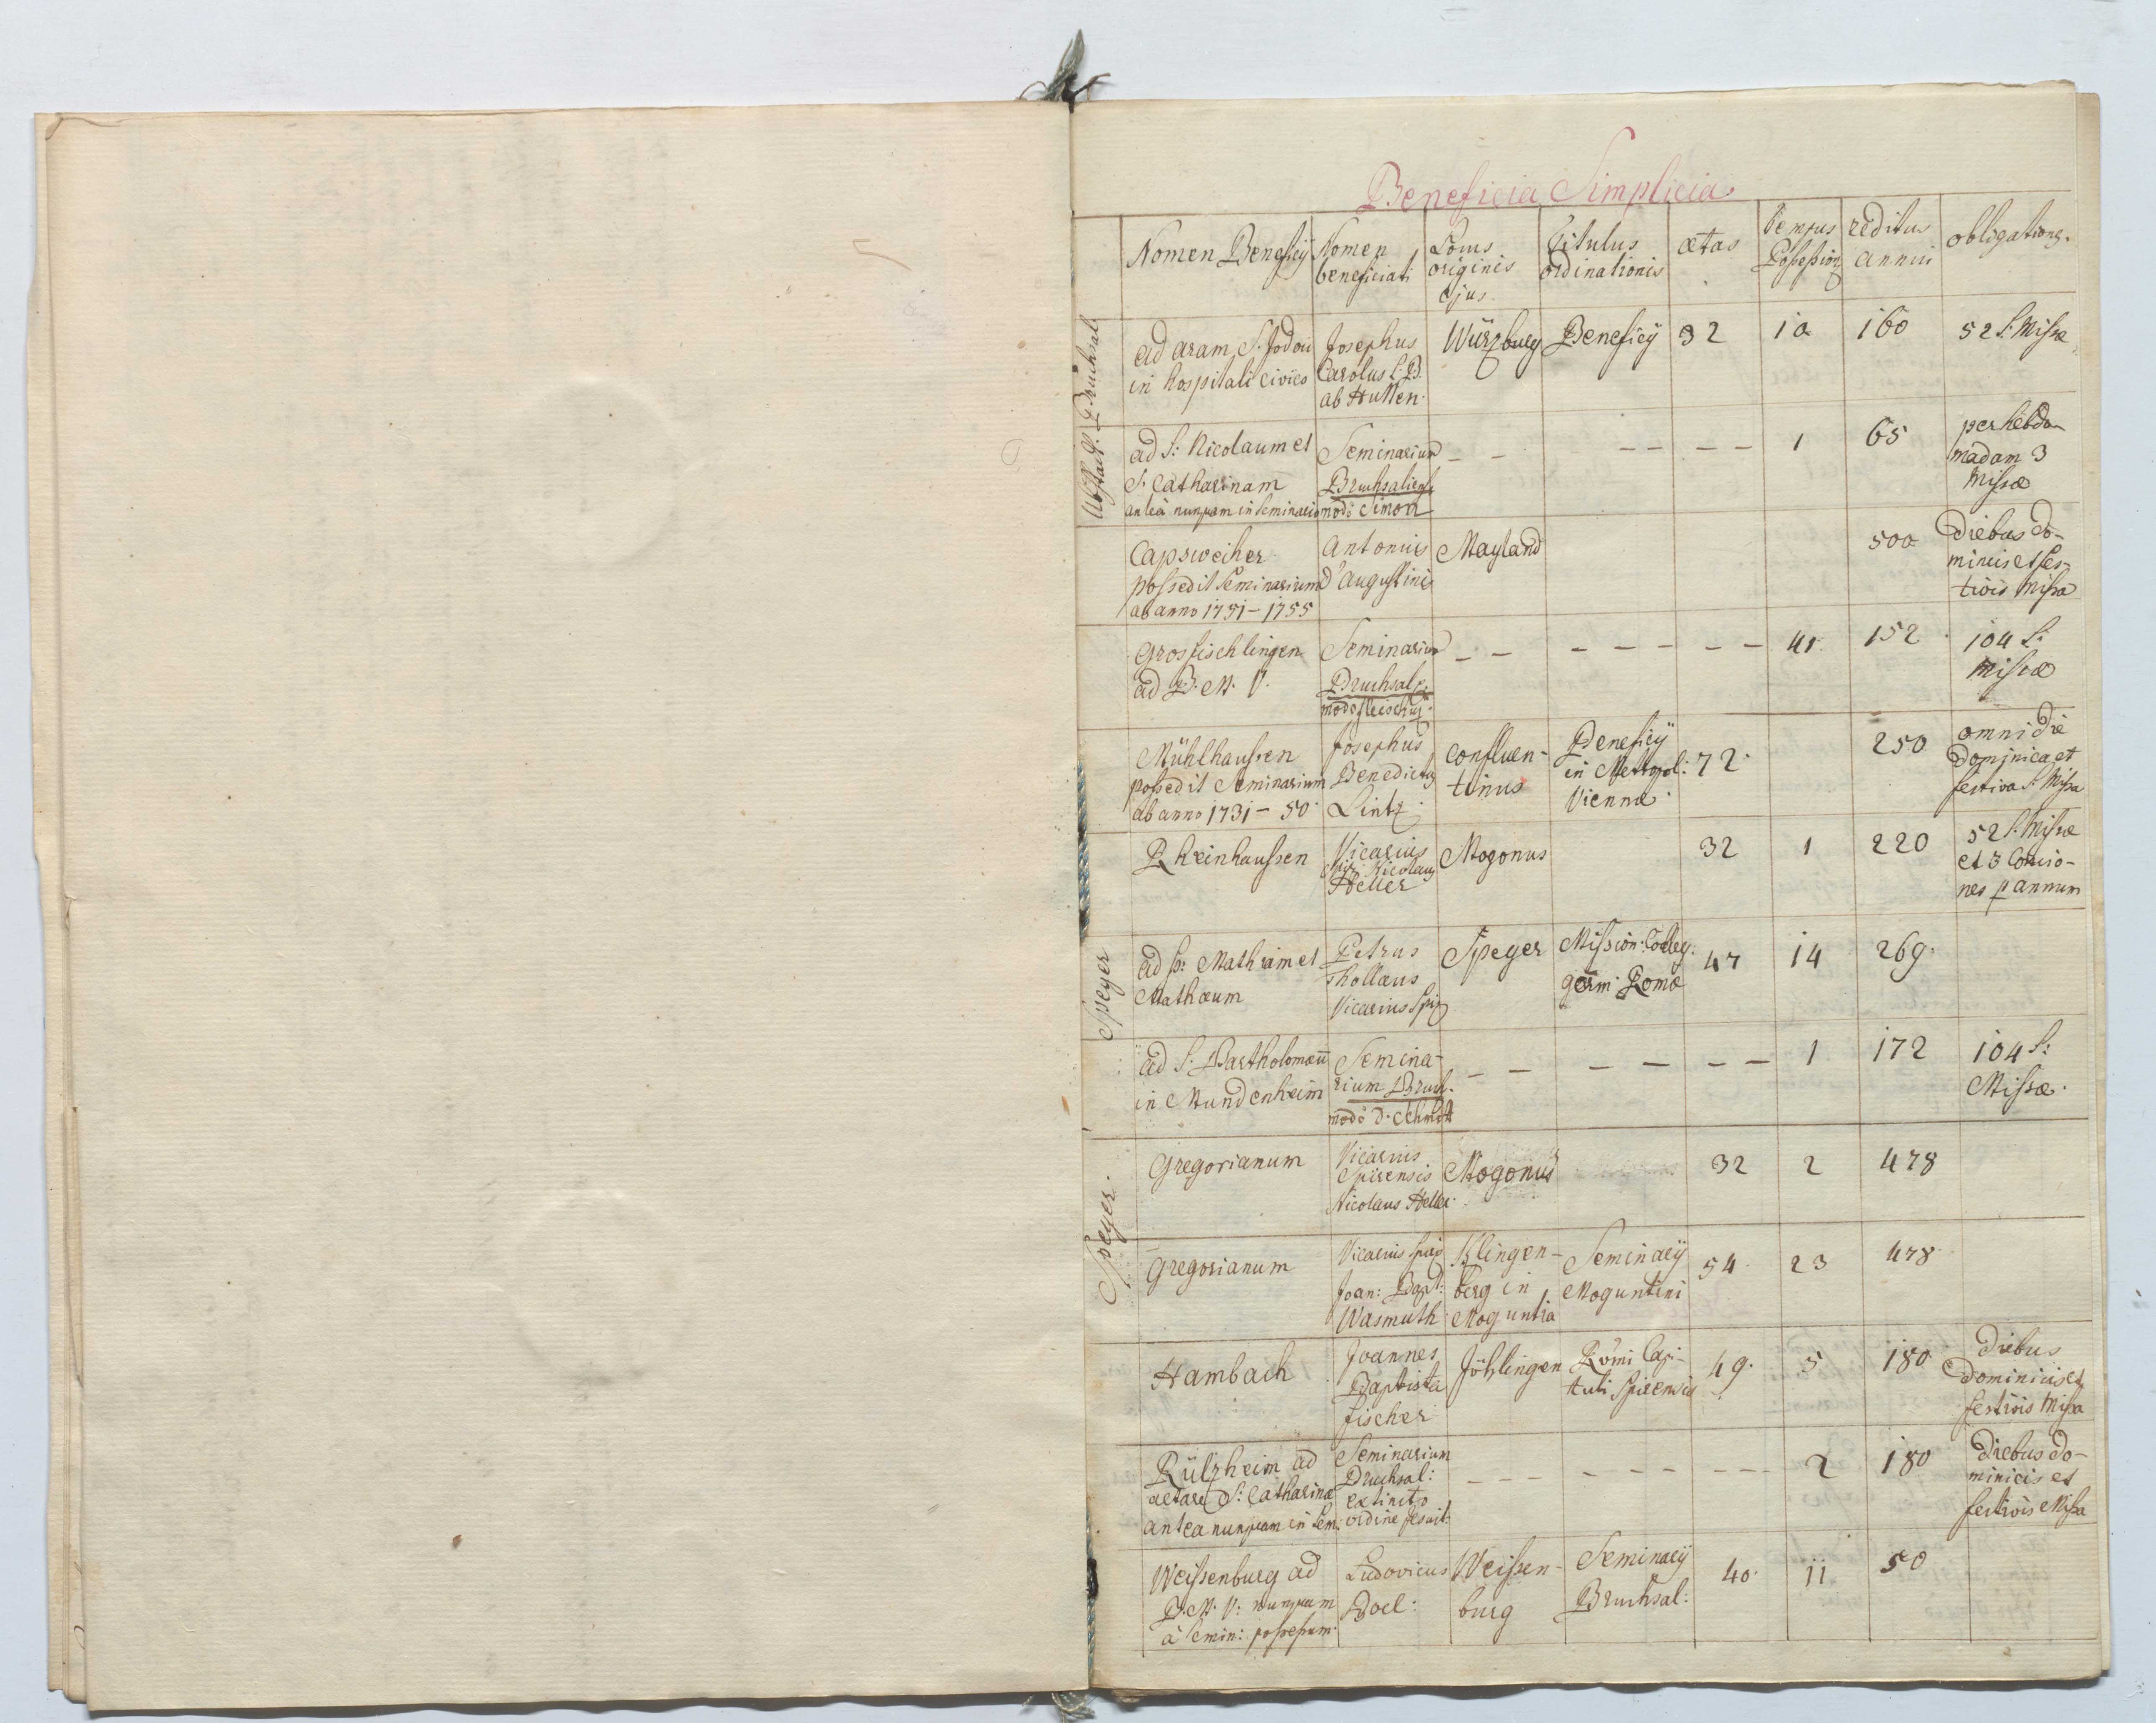 Beneficia Simplicia
Nomen Beneficÿ
Nomen
beneficiati
Locus
originis
ejus
Titulus
ordinationis
ætas
tempus
Possession
reditus
annui
obligationes
Bruchsal
ad aram S. Jodoci
in hospitali civico
Josephus
Carolus L. B.
ab Hutten
Würzburg
Beneficÿ
32
10
160
52 S. Missæ
Ubstatt
ad S: Nicolaum et
S. Catharinam
antea nunquam in Seminario
Seminarium
Bruchsaliense
modo Simon
– –
– – – –
1
65
per hebdo-
madam 3
Missæ
Capsweiher
possedit Seminarium
ab anno 1751 – 1755
Antonius
d'augustinis
Mayland
500
Diebus do-
minicis et fes-
tivis Missa
Grosfischlingen
ad B. M. V.
Seminarium
Bruchsal:
modo fleischuz
– –
– – – – –
41
152
104 S:
Missæ
Mühlhaussen
possedit Seminarium
ab anno 1731 – 50
Josephus
Benedictus
Lintz
confluen-
tinus
Beneficÿ
in Metropol:
Viennæ
72
250
omni die
Dominica et
festiva S. Missa
Rheinhaussen
Vicarius
Nicolaus
Heller
Mogonus
32
1
220
52 S. Missæ
et 3 Concio-
nes p annum
Speyer
ad ss: Mathiam et
Mathæum
Petrus
Thollaus
Vicarius Spir
Speyer
Mission: Colleg.
germ: Romæ
47
14
269
ad S. Bartholomæū
in Mundenheim
Semina-
rium Bruch.
modo D. Schmidt
– –
– – – –
1
172
104 S:
Missæ
Speyer
Gregorianum
Vicarius
Spirensis
Nicolaus Heller
Mogonus
32
2
478
Gregorianum
Vicarius Spir
Joan: Bapt:
Wasmuth
Klingen-
berg in
Moguntia
Seminarÿ
Moguntini
54
23
478
Hambach
Joannes
Baptista
fischer
Jöhlingen
Rōmi Capi-
tuli Spirensis
49
5
180
Diebus
Dominicis et
festivis Missa
Rülzheim ad
altare S: Catharinæ
antea nunquam in Sem:
Seminarium
Bruchsal:
extincto
ordine Jesuit:
– – –
– – – – – – –
2
180
Diebus do-
minicis et
festivis Missa
Weissenburg ad
B. M. V: nunquam
a Semin: possessum
Ludovicus
Boel:
Weissen-
burg
Seminarÿ
Bruchsal:
40
11
50